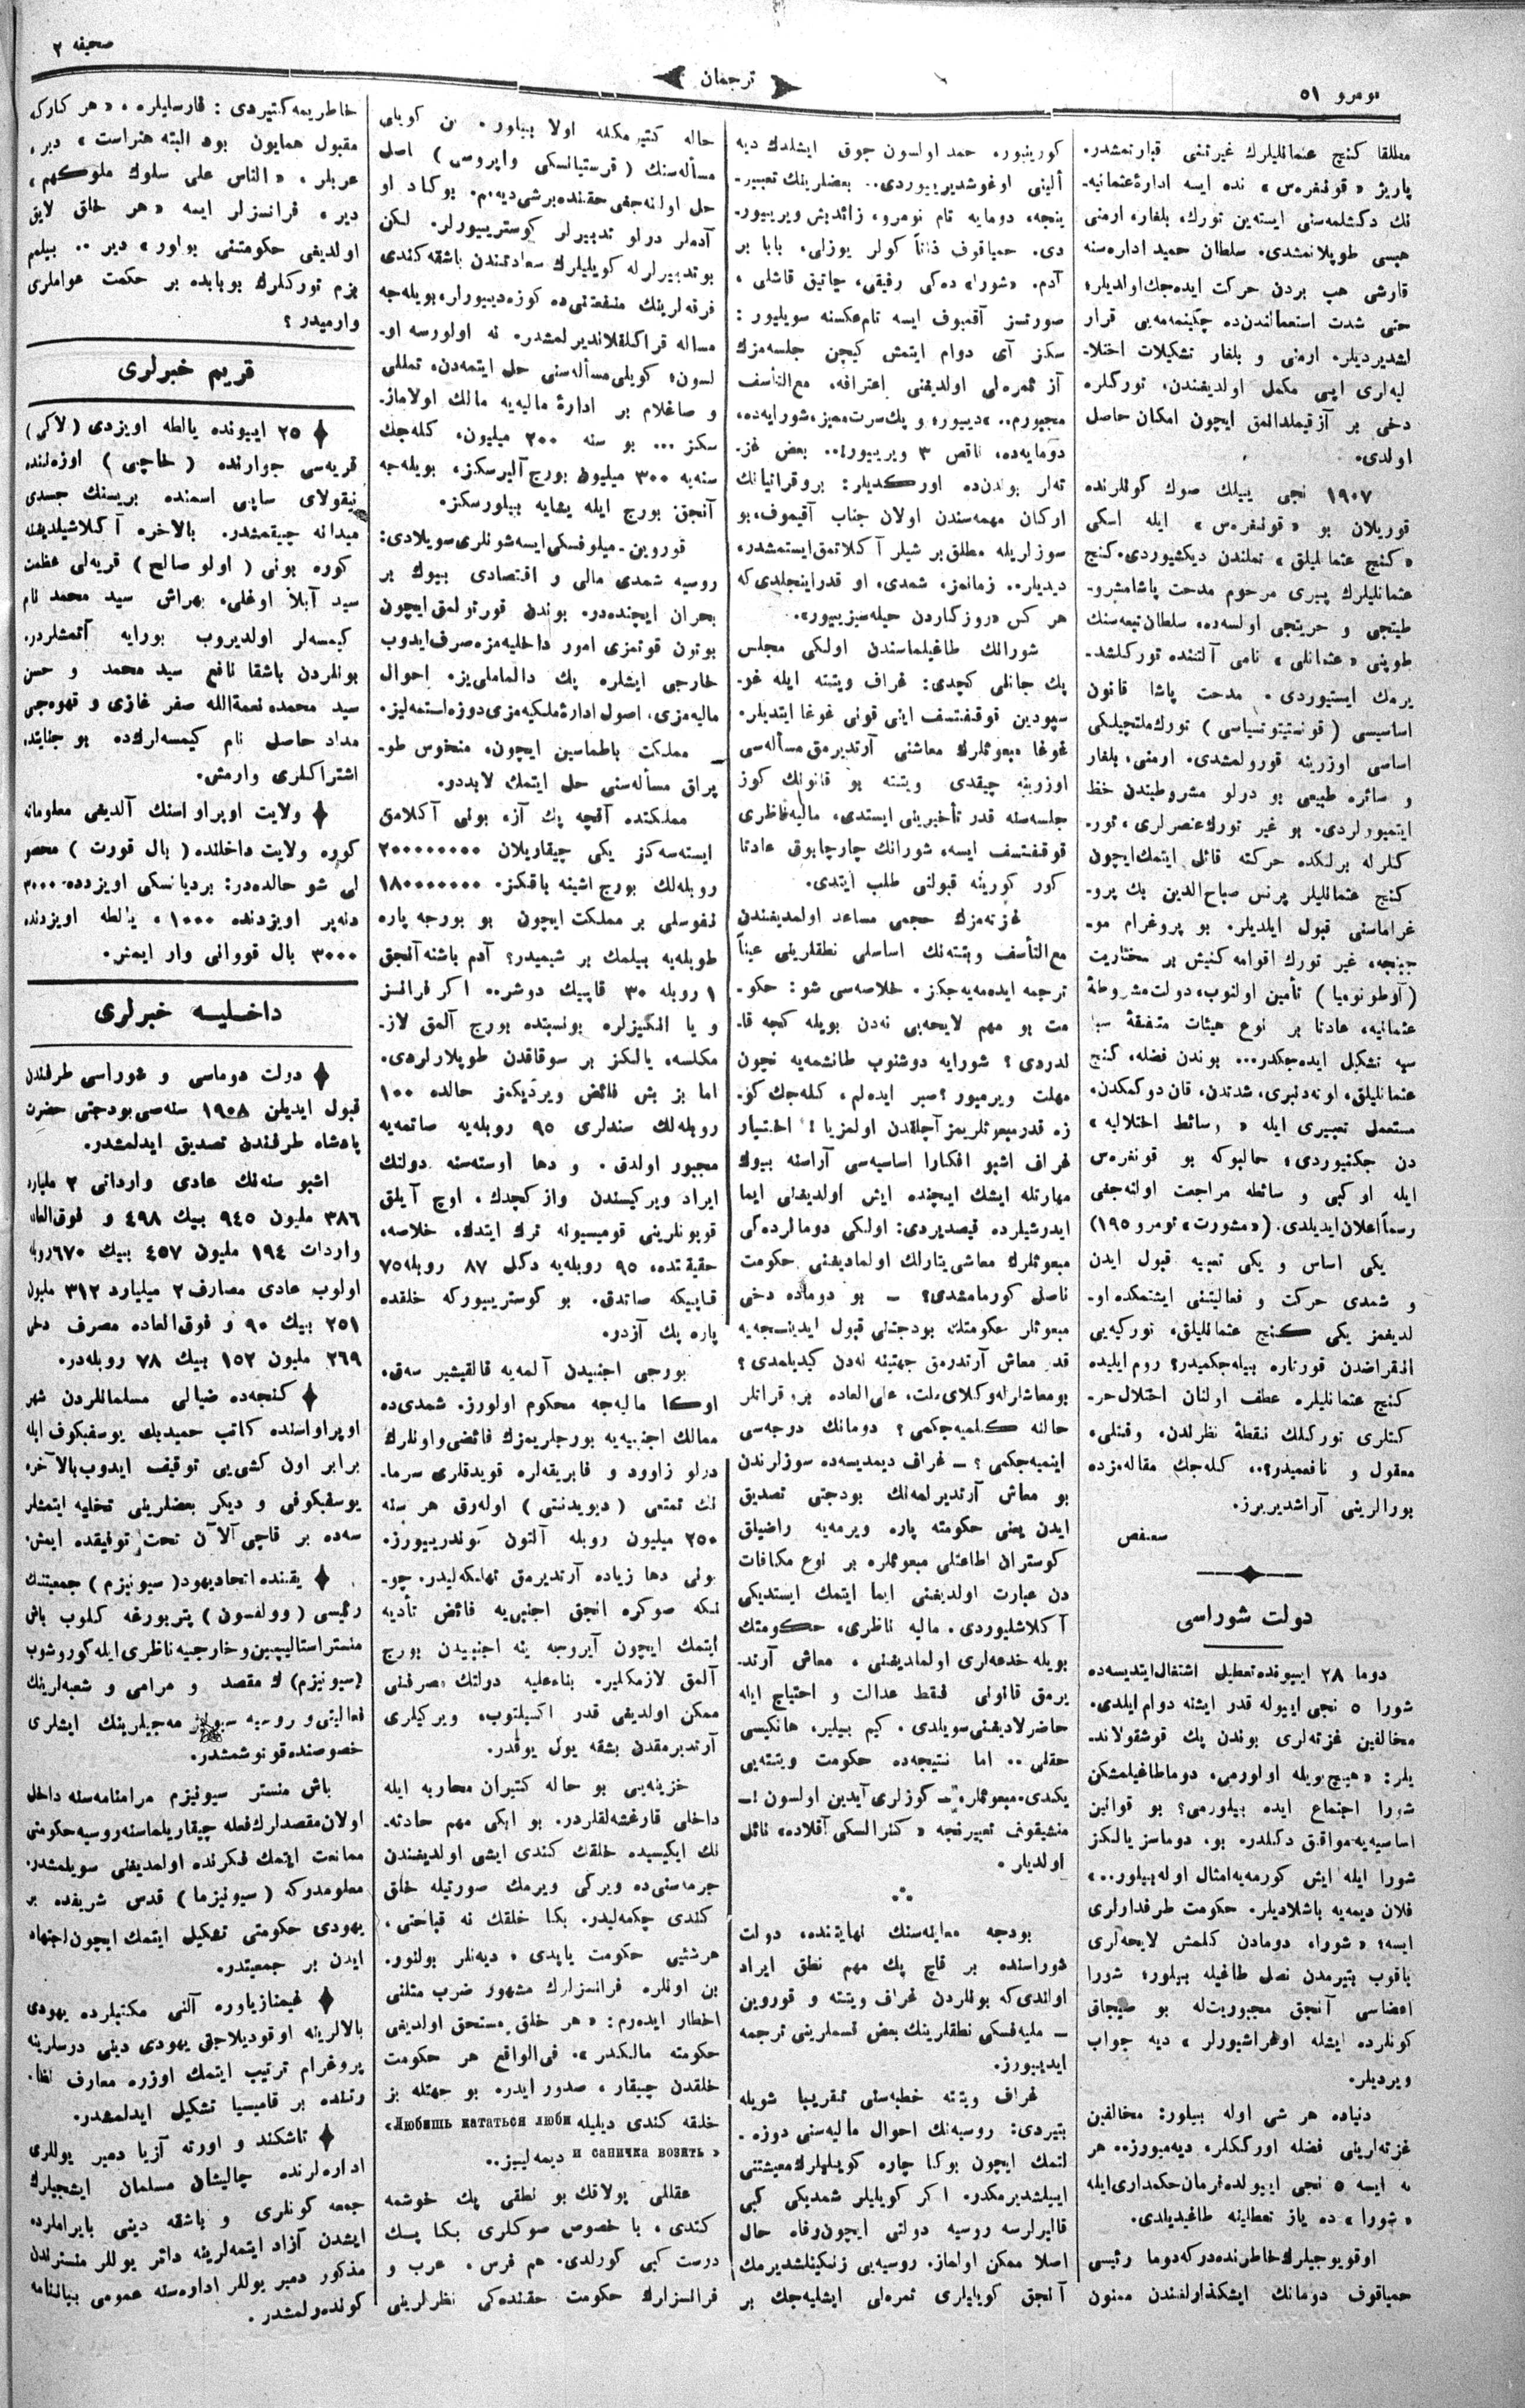 نومرو ٥١
ترجمان
صحيفه ٢
مطلقا كنج عثمانليلرك غيرتنى قبارتمشدر.
پاريژ «قونفره‌س» نده ايسه ادارۀ عثمانيه‌-
نك دكشلمه‌سنى ايسته‌ين تورك، بلغار، ارمنى
هپسى طوپلانمشدى. سلطان حميد اداره‌سنه
قارشى هپ بردن حركت ايده‌جك اولديلر؛
حتى شدت استعمالندن‌ده چكينمه‌مه‌يى قرار
لشديرديلر. ارمنى و بلغار تشكيلات اختلا-
ليه‌لرى ايپى مكمل اولديغندن، توركلره
دخى بر آز قيملدالمق ايچون امكان حاصل
اولدى.
١٩٠٧ نجى ييلك صوك كونلرنده
قوريلان بو «قونفره‌س» ايله اسكى
«كنج عثمانليلق» تملندن ديكشيوردى. كنج
عثمانليلرك پيرى مرحوم مدحت پاشا مشرو-
طيتجى و حريتجى اولسه‌ده، سلطان تبعه‌سنك
طوپنى «عثمانلى» نامى آلتنده توركلشد-
يرمك ايستيوردى. مدحت پاشا قانون
اساسيسى (قونستيتوتسياسى) تورك ملتچيلكى
اساسى اوزرينه قورولمشدى. ارمنى، بلغار
و سائره طبيعى بو درلو مشروطيتدن حظ
ايتميورلردى. بو غير تورك عنصرلرى، تور-
كلرله برلكده حركته قائل ايتمك ايچون
كنج عثمانليلر پرنس صباح‌الدين بك پرو-
غراماسنى قبول ايلديلر. بو پروغرام مو-
جبنجه، غير تورك اقوامه كنيش بر مختاريت
(آوطونوميا) تأمين اولنوب، دولت مشروطۀ
عثمانيه، عادتا بر نوع هيئات متفقۀ سيا
سيه تشكيل ايده‌جكدر... بوندن فضله، كنج
عثمانليلق، اوته‌دنبرى، شدتدن، قان دوكمكدن،
مستعمل تعبيرى ايله «وسائط اختلاليه»
دن چكنيوردى؛ حالبوكه بو قونفره‌س
ايله او كبى و سائطه مراجعت اولنه‌جغى
رسماً اعلان ايديلدى. («مشورت» نومرو ١٩٥)
يكى اساس و يكى تعبيه قبول ايدن
و شمدى حركت و فعاليتنى ايشتمكده او-
لديغمز يكى كنج عثمانليلق، توركيه‌يى
انقراضدن قورتاره بيله‌جكميدر؟ روم ايليده
كنج عثمانليلره عطف اولنان اختلال حر-
كتلرى توركلك نقطۀ نظرلدن، وقتلى،
معقول و نافعميدر؟.. كله‌جك مقاله‌مزده
بورالرينى آراشديريرز.
دولت شوراسى
دوما ٢٨ ايپونده تعطيل اشتغال ايتديسه‌ده
شورا ٥ نجى اييوله قدر ايشنه دوام ايلدى.
مخالفين غزته‌لرى بوندن پك قوشقولاند-
يلر: «هيچ بويله اولورمى، دوما طاغيلمشكن
شورا اجتماع ايده بيلورمى؟ بو قوانين
اساسيه‌يه موافق دكلدر. بو، دوماسز يالكز
شورا ايله ايش كورمه‌يه امثال اوله بيلور..»
فلان ديمه‌يه باشلاديلر. حكومت طرفدارلرى
ايسه؛ «شورا، دومادن كلمش لايحه‌لرى
باقوب بتيرمدن نصل طاغيله بيلور؛ شورا
اعضاسى آنجق مجبوريت‌له بو صيجاق
كونلرده ايشله اوغراشيورلر» ديه جواب
ويرديلر.
دنياده هر شى اوله بيلور: مخالفين
غزته‌لرينى فضله اوركلكلر، ديه‌ميورز.. هر
نه ايسه ٥ نجى اييولده فرمان حكمدارى ايله
«شورا» ده ياز تعطيلنه طاغيديلدى.
اوقويوجيلرك خاطرنده‌دركه دوما رئيسى
حمياقوف دومانك ايشكذارلغندن ممنون
كورينيور، حمد اولسون چوق ايشلدك ديه
ألينى اوغوشديرييوردى.. بعضلرينك تعبير-
ينجه، دومايه تام نومرو، زائد بش ويرييور-
دى. حمياقوف ذاتاً كولر يوزلى، بابا بر
آدم. «شورا» ده‌كى رفيقى، چاتيق قاشلى،
صورتسز آقمبوف ايسه تام عكسنه سويليور:
سكز آى دوام ايتمش كيچن جلسه‌مزك
آز ثمره‌لى اولديغنى اعترافه، مع‌التأسف
مجبورم.. «ديبور؛ و پك سرت مميز، شورايه‌ده،
دومايه‌ده، ناقص ٣ ويرييور!.. بعض غز-
ته‌لر بوندن‌ده اوركديلر: بروقراتيانك
اركان مهمه‌سندن اولان جناب آقيموف، بو
سوزلريله مطلق بر شيلر آكلاتمق ايستمشدر،
ديديلر.. زمانمز، شمدى، او قدر اينجلدى‌كه
هر كس «روزكاردن حيله سيزييور».
شورانك طاغيلماسندن اولكى مجلس
پك جانلى كچدى: غراف ويتته ايله غو-
سپودين قوقفتسف اينى قونى غوغا ايتديلر.
غوغا مبعوثلرك معاشنى آرتديرمق مسأله‌سى
اوزرينه چيقدى ويتته بو قانونك كوز
جلسه‌سنه قدر تأخيرينى ايستدى، ماليه ناظرى
قوقفتسف ايسه، شورانك چارچابوق عادتا
كور كورينه قبولنى طلب ايتدى.
غزته‌مزك حجمى مساعد اولمديغندن
مع‌التأسف ويتته‌نك اساسلى نطقلرينى عيناً
ترجمه ايده‌ميه‌جكز. خلاصه‌سى شو: حكو-
مت بو مهم لايحه‌يى نه‌دن بويله كچه قا-
لدردى؟ شورايه دوشنوب طانشمه‌يه نچون
مهلت ويرميور؟ صبر ايده‌لم، كله‌جك كو-
زه قدر مبعوثلريمز آچلقدن اولمزيا!. اختيار
غراف اشبو افكارا اساسيه‌سى آراسنه بيوك
مهارتله ايشك ايچنده ايش اولديغنى ايما
ايدرشيلرده قيصديردى: اولكى دومالرده‌كى
مبعوثلرك معاشى يتارلك اولماديغنى حكومت
ناصل كورمامشدى؟ ـ بو دوماده دخى
مبعوثلر حكومتك بودجه‌نى قبول ايدينجه‌يه
قدر معاش آرتدرمق جهتينه نه‌دن كيديلمدى؟
بو معاشلرله وكلاى ملت، على‌العاده بروقراتلر
حالنه كلميه‌جكمى؟ دومانك دوجه‌سى
اينميه‌جكمى؟ ـ غراف ديمديسه‌ده سوزلرندن
بو معاش آرتديرلمه‌نك بودجتى تصديق
ايدن يعنى حكومته پاره ويرمه‌يه راضيلق
كوستران اطاعتلى مبعوثلره بر نوع مكافات
دن عبارت اولديغنى ايما ايتمك ايستديكى
آكلاشليوردى. ماليه ناظرى، حكومتك
بويله خدعه‌لرى اولماديغنى، معاش آرتد-
يرمق قانونى فقط عدالت و احتياج ايله
حاضرلاديغنى سويلدى. كيم بيلير، هانكيسى
حقلى.. اما نتيجه‌ده حكومت ويتته‌يى
يكدى، مبعوثلره ـ كوزلرى آيدين اولسون! ـ
منشيقوف تعبيرنجه «كنرالسكى آقلاده» نائل
اولديلر.
بودجه معاينه‌سنك نهايتنده، دولت
شوراسنده بر قاچ پك مهم نطق ايراد
اولندى‌كه بونلردن غراف ويتته و قوروين
ـ مليه‌فسكى نطقلرينك بعض قسملرينى ترجمه
ايدييورز.
غراف ويتته خطبه‌سنى تقريبا شويله
بتيردى: روسيه‌نك احوال ماليه‌سنى دوزه-
لتمك ايچون بوكا چاره كويليلرك معيشتنى
ايپيلشديرمكدر. اكر كويليلر شمديكى كبى
قاليرلرسه روسيه دولتى ايچون رفاه حال
اصلا ممكن اولماز. روسيه‌يى زنكينلشديرمك
آنجق كويليلرى ثمره‌لى ايشليه‌جك بر
حاله كتيرمكله اولا بيلور. بن كويلى
مسأله‌سنك (قرستيانسكى واپروس) اصل
حل اولنه‌جغى حقنده برشى ديه‌مم. بوكاد او
آدملر درلو تدبيرلر كوستريييورلر. لكن
بو تدبيرلرله كويليلرك سعادتندن باشقه كندى
فرقه‌لرينك منفعتنى‌ده كوزه‌دييورلر، بويله‌جه
مساله قراكلقلانديرلمشدر. نه اولورسه او-
لسون؛ كويلى مسأله‌سنى حل ايتمه‌دن، تمللى
و صاغلام بر ادارۀ ماليه‌يه مالك اولاماز-
سكز... بو سنه ٢٠٠ ميليون، كله‌جك
سنه‌يه ٣٠٠ ميليون بورج آليرسكز، بويله‌جه
آنجق بورج ايله يشايه بيلورسكز.
قوروين ـ ميلوفسكى ايسه شونلرى سويلادى:
روسيه شمدى مالى و اقتصادى بيوك بر
بحران ايچنده‌در. بوندن قورتولمق ايچون
بوتون قوتمزى امور داخليه‌مزه صرف ايدوب
خارجى ايشلره پك دالماملى‌يز. احوال
ماليه‌مزى، اصول ادارۀ ملكيه‌مزى دوزه‌لتمه‌ليز.
مملكت باطماسين ايچون، منحوس طو-
پراق مسأله‌سنى حل ايتمك لابددو.
مملكتده آقچه پك آز، بونى آكلامق
ايسته‌سه‌كز يكى چيقاريلان ٢٠٠٠٠٠٠٠٠
روبله‌لك بورج اشينه باقكز. ١٨٠٠٠٠٠٠٠
نفوسلى بر مملكت ايچون بو بورجه پاره
طوپله‌يه بيلمك بر شيميدر؟ آدم باشنه آنجق
١ روبله ٣٠ قاپيك دوشر.. اكر فرانسز
و يا انكليزلره بونسبتده بورج آلمق لاز-
مكلسه، يالكز بر سوقاقدن طوپلارلردى.
اما بز بش فائض ويرديكمز حالده ١٠٠
روبله‌لك سندلرى ٩٥ روبله‌يه صاتمه‌يه
مجبور اولدق. و دها اوسته‌سنه دولتك
ايراد ويركيسندن واز كچدك. اوچ آيلق
قوپونلرينى قوميسيونه ترك ايتدك. خلاصه،
حقيقتده، ٩٥ روبله‌يه دكل ٨٧ روبله ٧٥
قاپيكه صاتدق. بو كوسترييوركه خلقده
پاره پك آزدر.
بورجى اجنبيدن آلمه‌يه قالقيشير سه‌ق،
اوكا ماليه‌جه محكوم اولورز. شمدى‌ده
ممالك اجنبيه‌يه بورجلريمزك فائضى و اونلرك
درلو زاوود و فابريقه‌لره قويدقلرى سرما-
نك تمتعى (ديويدنتى) اوله‌رق هر سنه
٢٥٠ ميليون روبله آلتون كوندرييورز.
بونى دها زياده آرتديرمق تهلكه‌ليدر. چو-
نكه صوكره آنجق اجنبى‌يه فائض تأديه
ايتمك ايچون آيروجه ينه اجنبيدن بورج
آلمق لازمكلير. بناءعليه دولتك مصرفنى
ممكن اولديغى قدر اكسيلتوب، ويركيلرى
آرتديرمقدن بشقه يول يوقدر.
خزينه‌يى بو حاله كتيران محاربه ايله
داخلى قارغشه‌لقلردر. بو ايكى مهم حادثه-
نك ايكيسيده خلقك كندى ايشى اولديغندن
جرمه‌سنى‌ده ويركى ويرمك صورتيله خلق
كندى چكمه‌ليدر. بكا خلقك نه قباحتى،
هرشيئى حكومت ياپدى، ديه‌نلر بولنور.
بن اونلره فرانسزلرك مشهور ضرب مثلنى
اخطار ايده‌رم: «هر خلق مستحق اولديغى
حكومته مالكدر». فى‌الواقع هر حكومت
خلقدن چيقار، صدور ايدر. بو جهتله بز
خلقه كندى ديليله «Любишь кататься люби
и саничка возить» ديمه‌لييز..
عقللى پولاقك بو نطقى پك خوشمه
كندى. با خصوص صوكلرى بكا پك
درست كبى كورلدى. هم فرس، عرب و
فرانسزلرك حكومت حقنده‌كى نظرلرينى
خاطريمه كتيردى: فارسليلر، «هر كاركه
مقبول همايون بود البته هنراست» دير،
عربلر، «الناس على سلوك ملوكهم»
دير، فرانسزلر ايسه «هر خلق لايق
اولديغى حكومتنى بولور» دير.. بيلمم
بزم توركلرك بوبابده بر حكمت عواملرى
وارميدر؟
قريم خبرلرى
٢٥ اييونده يالطه اويزدى (لاكى)
قريه‌سى جوارنده (خاچى) اوزه‌لنده
نيقولاى سايى اسمنده بريسنك جسدى
ميدانه چيقمشدر. بالاخره آكلاشيلديغنه
كوره بونى (اولو صالح) قريه‌لى عظمت
سيد آبلا اوغلى، بهراش سيد محمد نام
كيمسه‌لر اولديروب بورايه آتمشلردر.
بونلردن باشقا نافع سيد محمد و حسن
سيد محمده نعمةالله صفر غازى و قهوه‌جى
مداد حاصل نام كيمسه‌لرك‌ده بو جنايتده
اشتراكلرى وارمش.
ولايت اوپراواسنك آلديغى معلوماته
كوره ولايت داخلنده (بال قورت) محصو
لى شو حالده‌در: برديانسكى اويزدده ٣٠٠٠،
دنه‌پر اويزدنده ١٠٠٠، يالطه اويزدنده
٣٠٠٠ بال قووانى وار ايمش.
داخليه خبرلرى
دولت دوماسى و شوراسى طرفندن
قبول ايديلن ١٩٠٨ سنه‌سى بودجتى حضرت
پادشاه طرفندن تصديق ايدلمشدر.
اشبو سنه‌نك عادى وارداتى ٢ مليارد
٣٨٦ مليون ٩٤٥ بيك ٤٩٨ و فوق‌العاده
واردات ١٩٤ مليون ٤٥٧ بيك ٦٧٠ روبله
اولوب عادى مصارف ٢ ميليارد ٣١٢ مليون
٢٥١ بيك ٩٠ و فوق‌العاده مصرف دخى
٢٦٩ مليون ١٥٢ بيك ٧٨ روبله‌در.
كنجه‌ده ضيالى مسلمانلردن شهر
اوپراواسنده كاتب حميدبك يوسفبكوف ايله
برابر اون كشى‌يى توقيف ايدوب بالآخره
يوسفبكوفى و ديكر بعضلرينى تخليه ايتمشلر
سه‌ده بر قاچى آلآن تحت توقيفده ايمش.
يقينده اتحاد يهود (سيونيزم) جمعيتنك
رئيسى (وولفسون) پتربورغه كلوب باش
منستر استاليپين و خارجيه ناظرى ايله كوروشوب
(سيونيزم) ك مقصد و مرامى و شعبه‌لرينك
فعاليتى و روسيه سيونيزمه‌جيلرينك ايشلرى
خصوصنده قونوشمشدر.
باش منستر سيونيزم مرامنامه‌سنه داخل
اولان مقصدلرك فعله چيقاريلماسنه روسيه حكومتى
ممانعت ايتمك فكرنده اولمديغنى سويلمشدر.
معلومدركه (سيونيزما) قدس شريفده بر
يهودى حكومتى تشكيل ايتمك ايچون اجتهاد
ايدن بر جمعيتدر.
غيمنازياوره آلنى مكتبلرده يهودى
بالالرينه اوقوديلاجق يهودى دينى درسلرينه
پروغرام ترتيب ايتمك اوزره معارف نظا-
رتنده بر قاميسيا تشكيل ايدلمشدر.
تاشكند و اورته آزيا دمير يوللرى
اداره‌لرنده چاليشان مسلمان ايشجيلرك
جمعه كونلرى و باشقه دينى بايراملرده
ايشدن آزاد ايتمه‌لرينه دائر يوللر منسترلندن
مذكور دمير يوللر اداره‌سنه عمومى بيانتنامه
كوندرولمشدر.